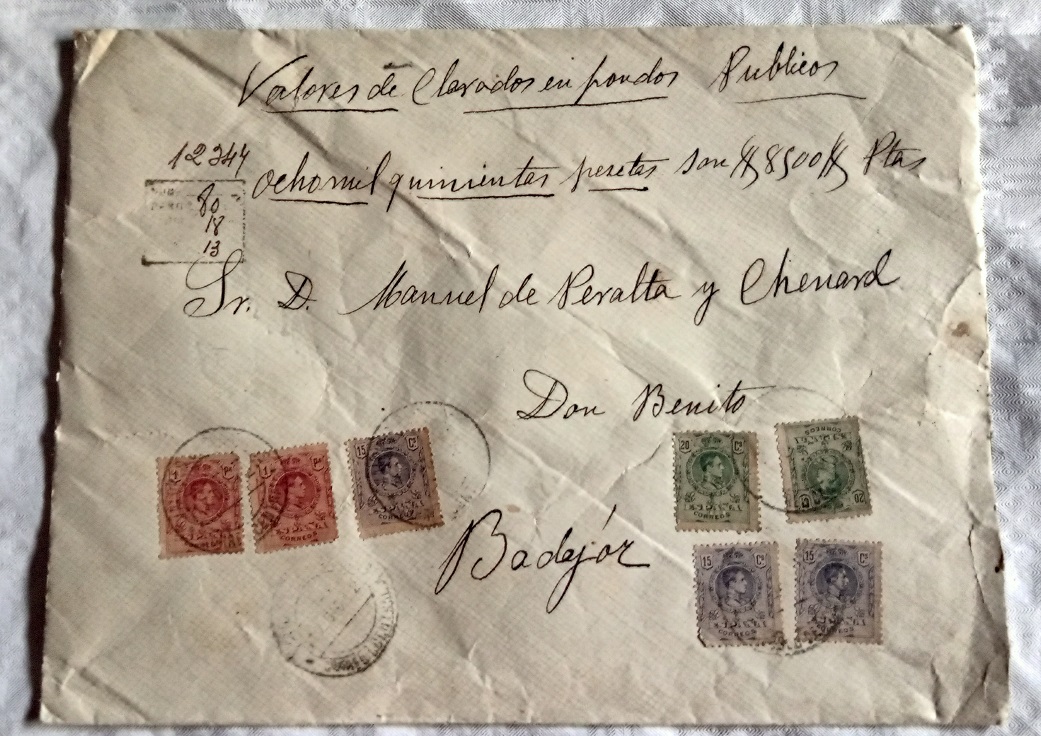 Valores de Clarados en fondos Publicos
12344
ochomil quinientas pesetas son 8500 Ptas
80
18
13
Sr. D. Manuel de Peralta y Chenard
Don Benito
Badajóz
1 Pta
1 Pta
15 Cs
CORREOS
20 Cs
CORREOS
20 Cs
CORREOS
15 Cs
CORREOS
15 Cs
CORREOS